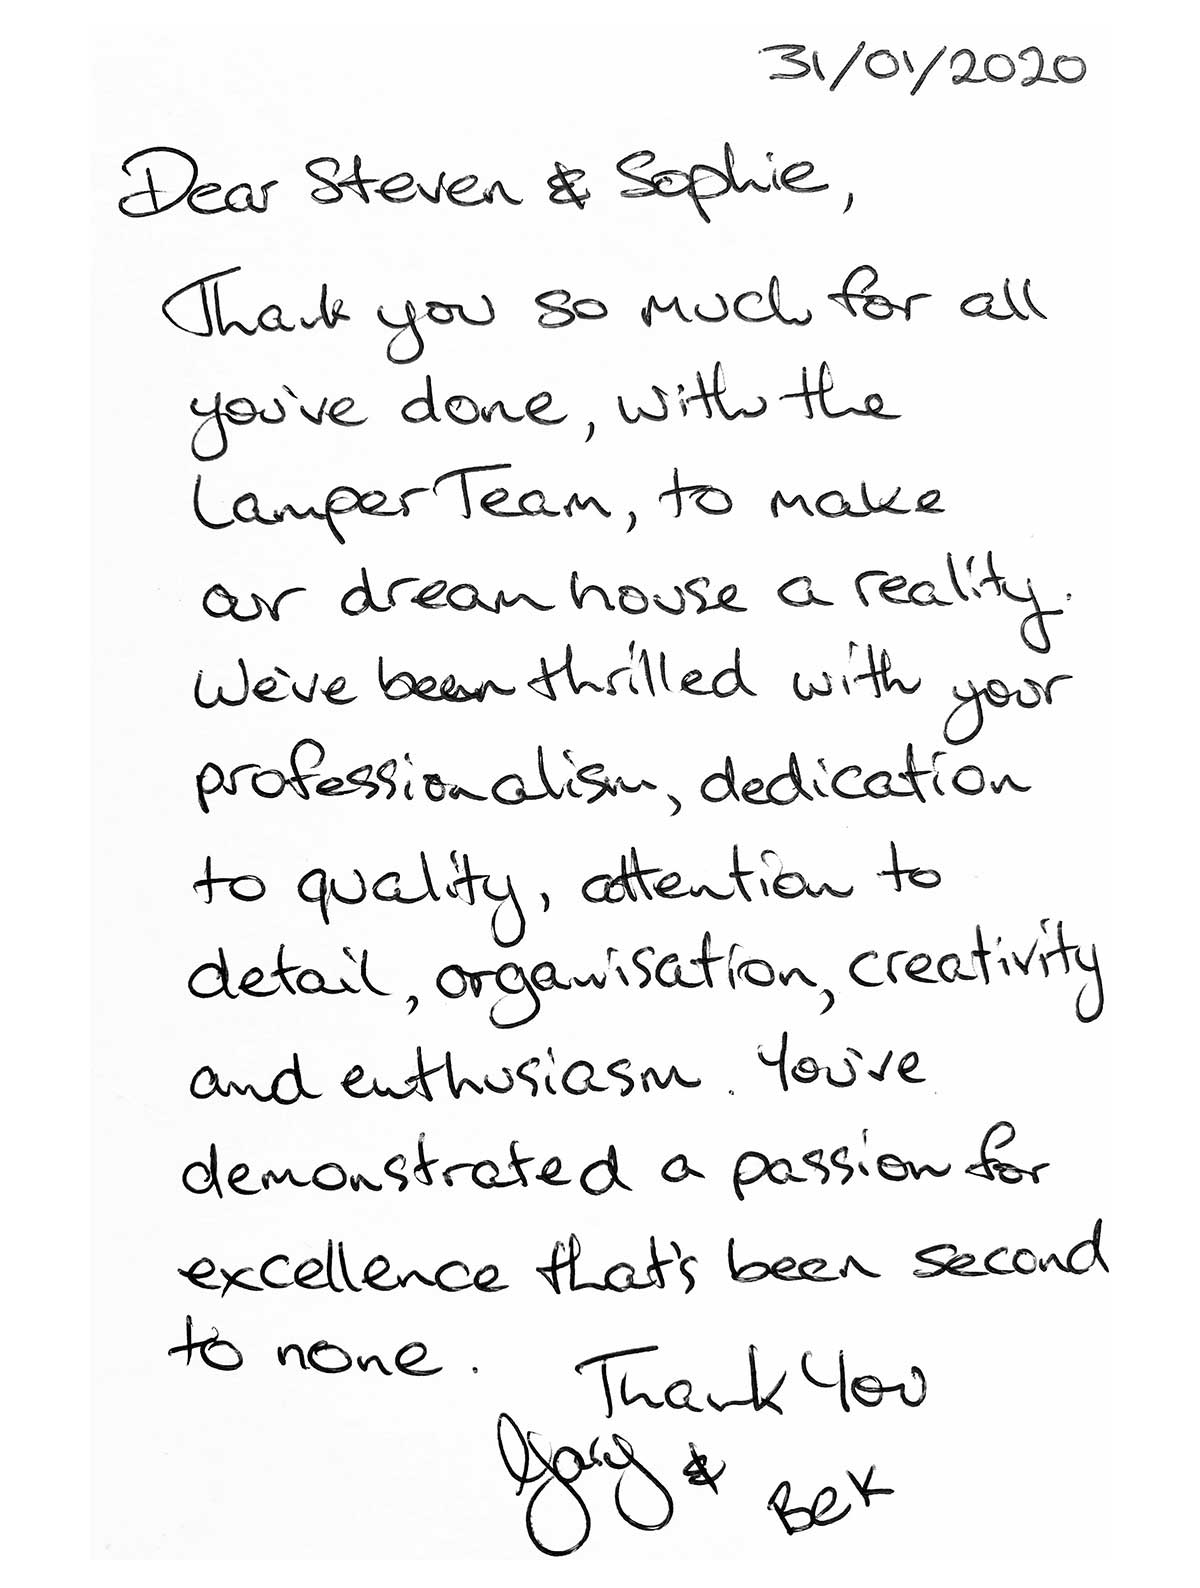 31/01/2020
Dear Steven & Sophie,
Thank you so much for all
you've done, with the
Lamper Team, to make
our dream house a reality.
We've been thrilled with your
professionalism, dedication
to quality, attention to
detail, organisation, creativity
and enthusiasm. You've
demonstrated a passion for
excellence that's been second
to none.
Thank You
Gary &
Bek